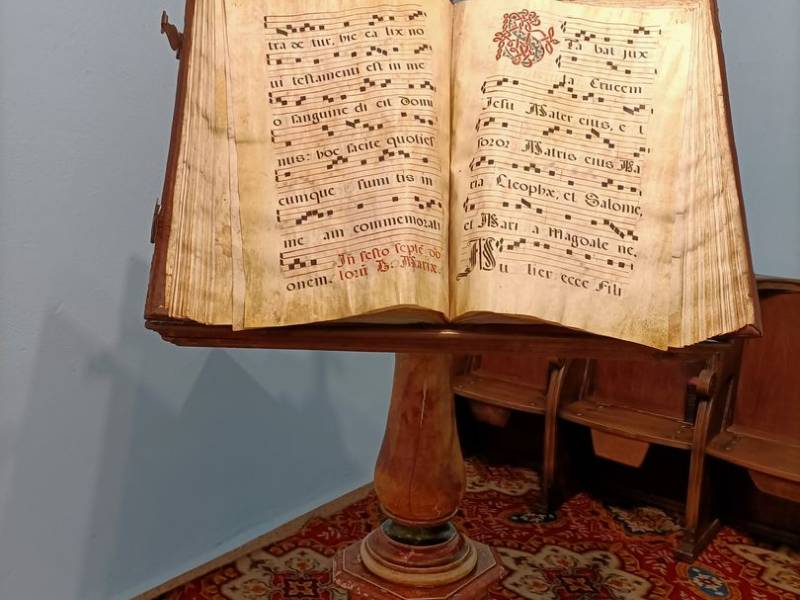 tra de tur, hic ca lix no
ui testamenti est in me
o sanguine di cit domi
nus: hoc facite quotiesc
cumque sumi tis in
me am commemorati
onem. In festo septē do
lorū B. Mariæ.
Sta bat jux
ta Crucem
Jesu Mater eius, e t
soror Matris eius Ma
ria Cleophæ, et Salome,
et Mari a Magdale ne.
Mu lier ecce Fili